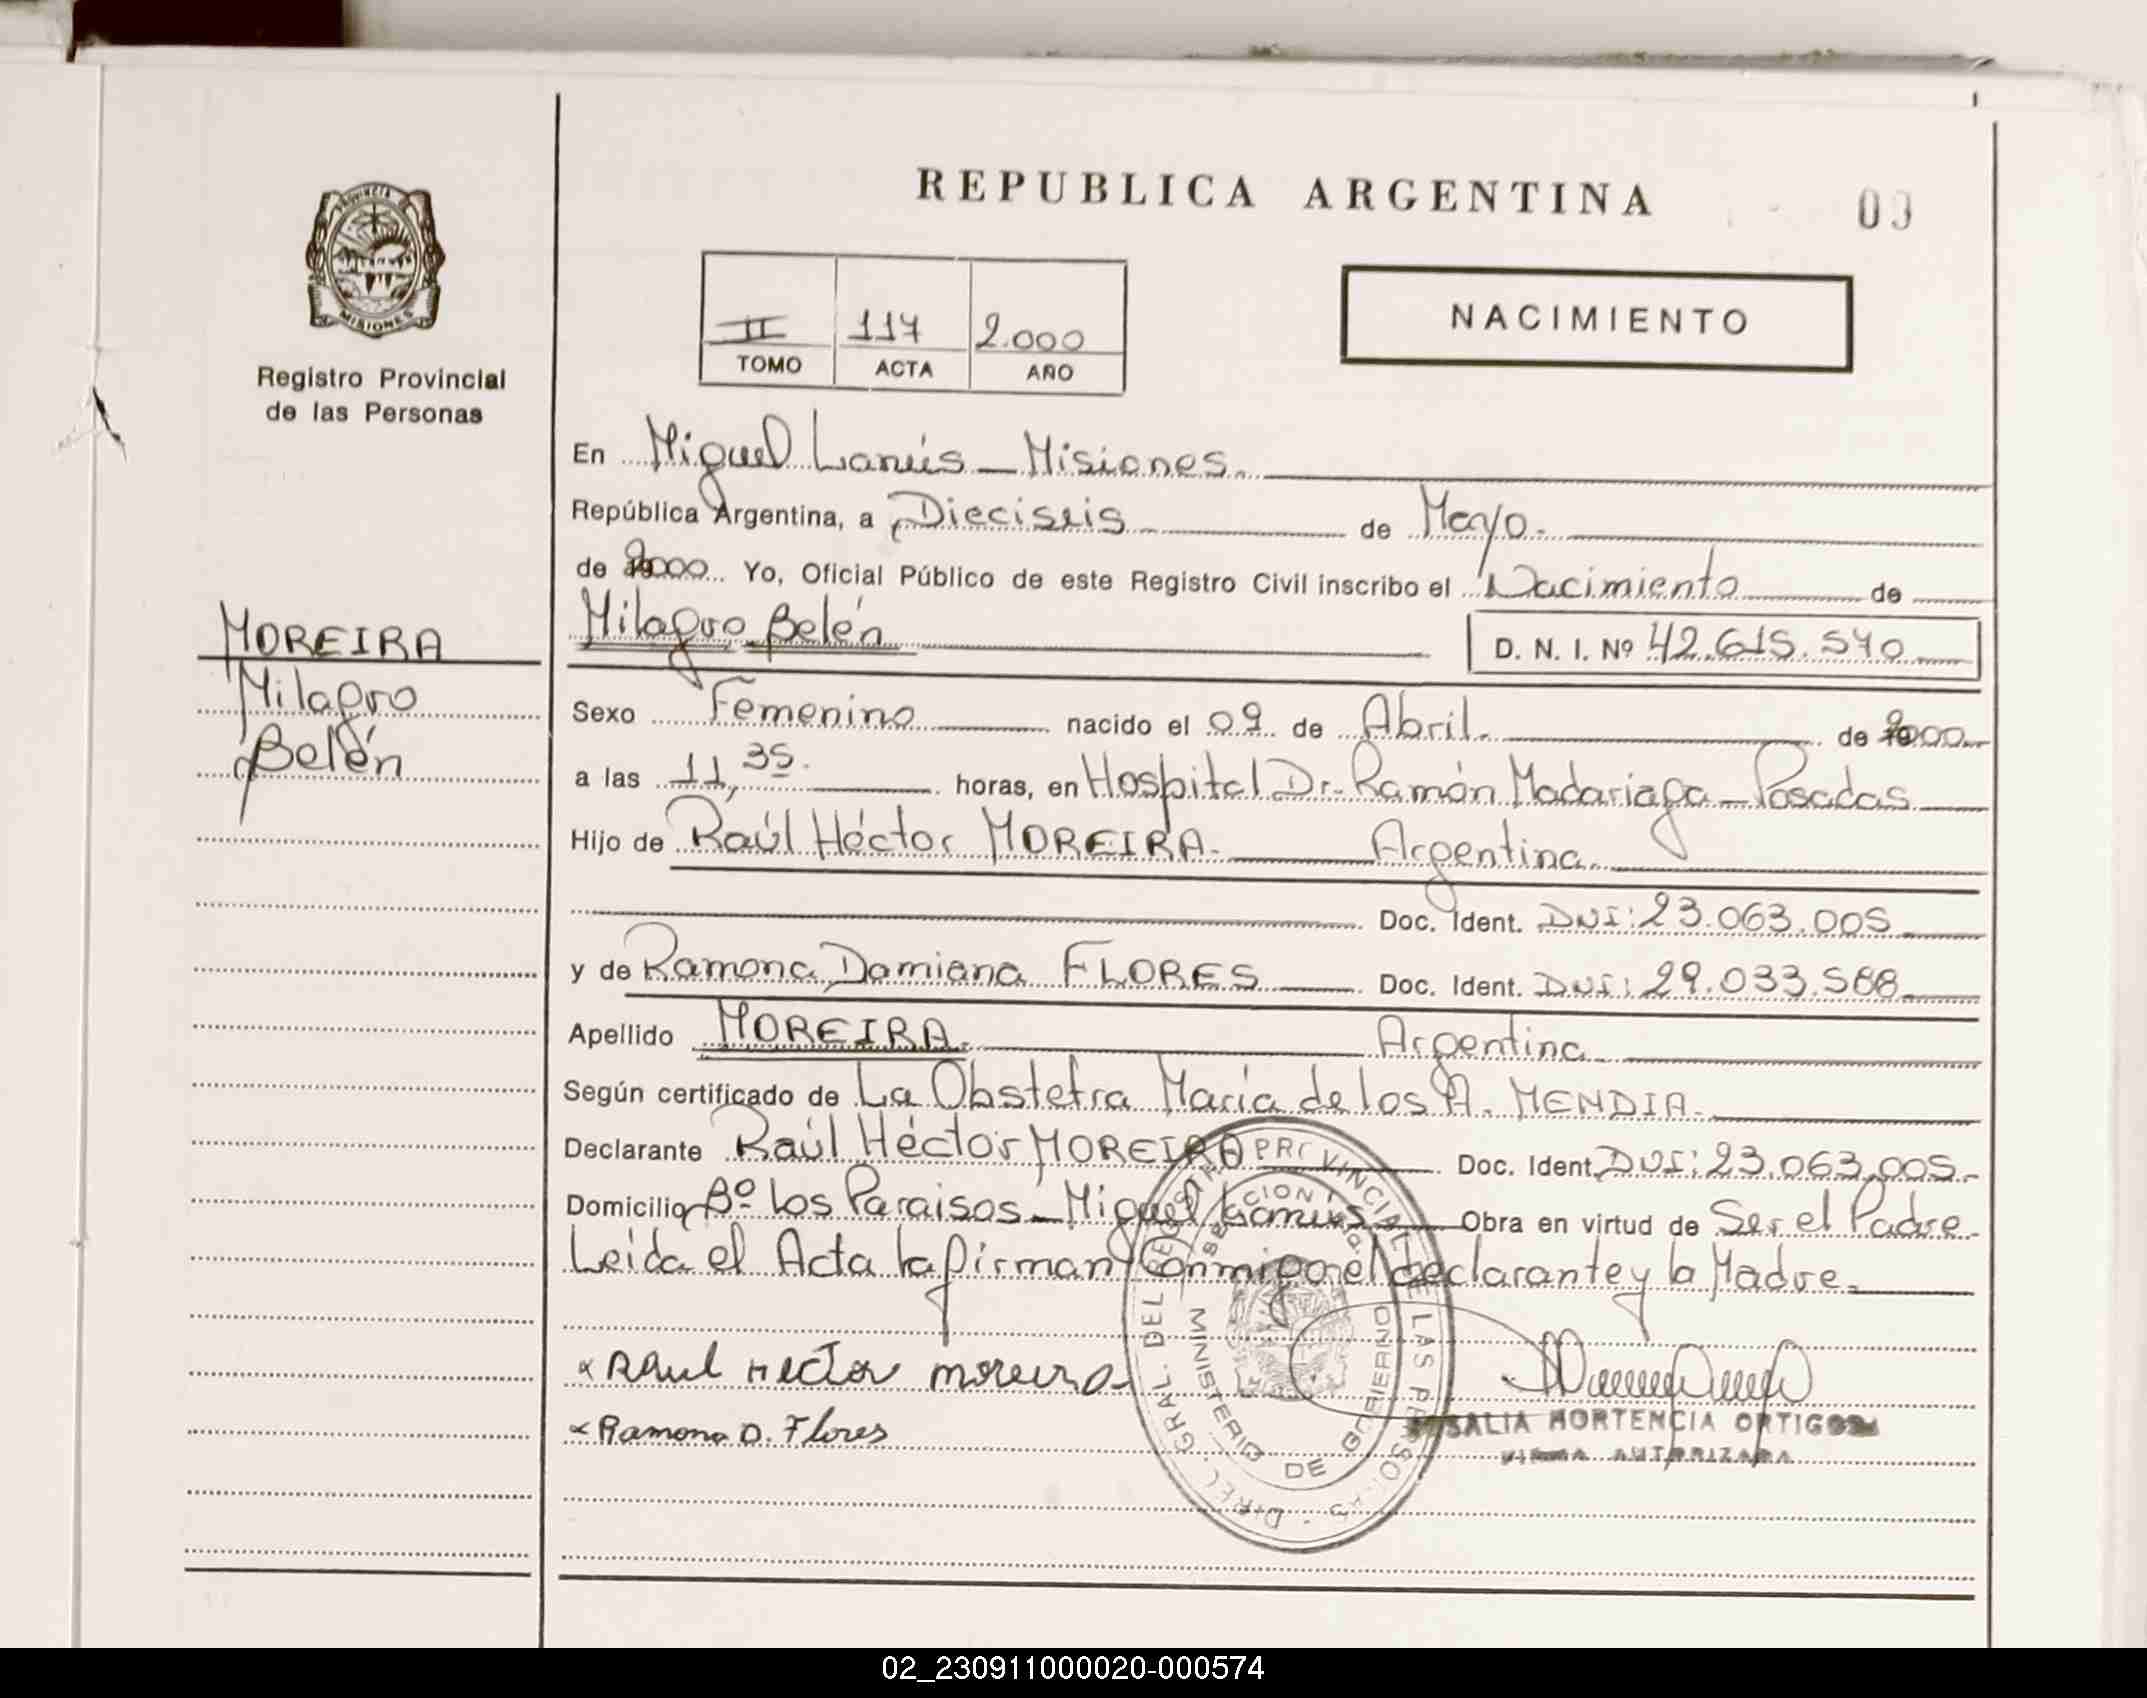 REPUBLICA ARGENTINA
PROVINCIA
MISIONES
Registro Provincial
de las Personas
II 117 2.000
TOMO ACTA AÑO
NACIMIENTO
En Miguel Lanús - Misiones.
República Argentina, a Dieciseis de Mayo.
de 2000 Yo, Oficial Público de este Registro Civil inscribo el Nacimiento de
Milagro Belén D. N. I. Nº 42.615.540
MOREIRA
Milagro
Belén
Sexo Femenino nacido el 09 de Abril. de 2000
a las 11,35. horas, en Hospital Dr. Ramón Madariaga - Posadas
Hijo de Raúl Héctor MOREIRA. Argentina.
Doc. Ident. DNI: 23.063.005
y de Ramona Damiana FLORES Doc. Ident. DNI: 29.033.588
Apellido MOREIRA. Argentina
Según certificado de La Obstetra María de los A. MENDIA.
Declarante Raúl Héctor MOREIRA Doc. Ident. DNI: 23.063.005.
Domicilio Bº Los Paraisos - Miguel Lanús Obra en virtud de Ser el Padre.
Leída el Acta la firman Conmigo el declarante y la Madre.
x Raul Hector moreira
x Ramona D. Flores
DIREC. GRAL. DEL REGISTRO PROVINCIAL DE LAS PERSONAS
MINISTERIO DE GOBIERNO
HORTENCIA ORTIGOZA
FIRMA AUTORIZADA
02_230911000020-000574